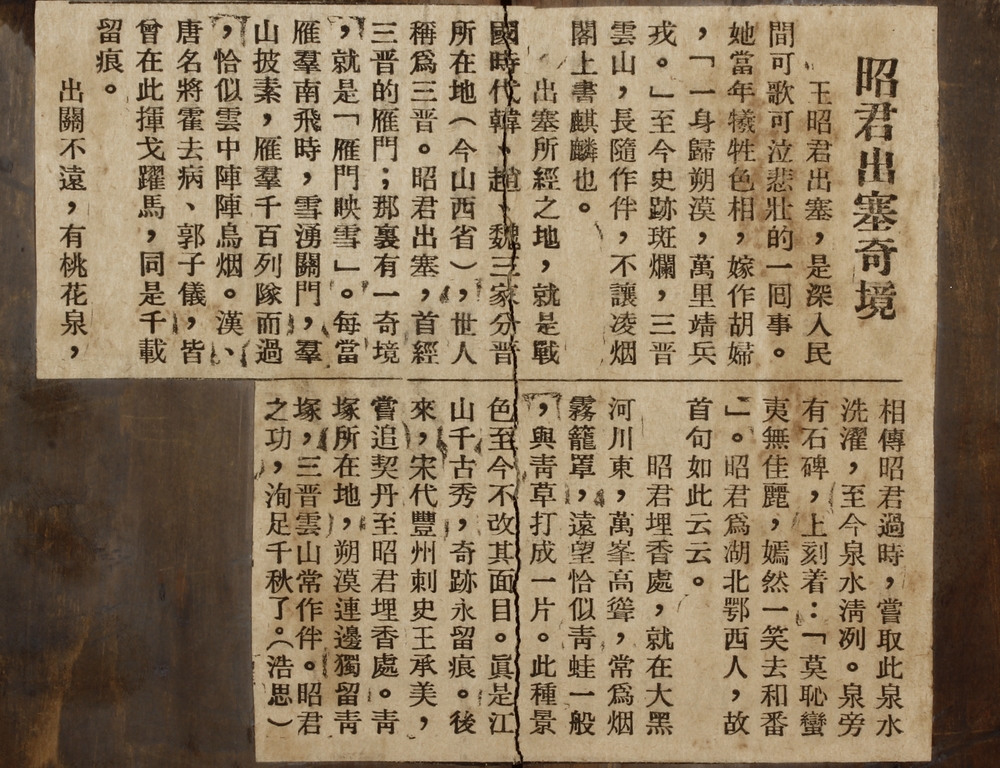 昭君出塞奇境
王昭君出塞，是深入民
間可歌可泣悲壯的一回事。
她當年犧牲色相，嫁作胡婦
，「一身歸朔漠，萬里靖兵
戎。」至今史跡斑爛，三晋
雲山，長隨作伴，不讓凌烟
閣上書麒麟也。
出塞所經之地，就是戰
國時代韓、趙、魏三家分晋
所在地（今山西省），世人
稱爲三晋。昭君出塞，首經
三晋的雁門；那裏有一奇境
，就是「雁門映雪」。每當
雁羣南飛時，雪湧關門，羣
山披素，雁羣千百列隊而過
，恰似雲中陣陣烏烟。漢、
唐名將霍去病、郭子儀，皆
曾在此揮戈躍馬，同是千載
留痕。
出關不遠，有桃花泉，
相傳昭君過時，嘗取此泉水
洗濯，至今泉水淸冽。泉旁
有石碑，上刻着：「莫恥蠻
夷無佳麗，嫣然一笑去和番
」。昭君爲湖北鄂西人，故
首句如此云云。
昭君埋香處，就在大黑
河川東，萬峯高聳，常爲烟
霧籠罩，遠望恰似靑蛙一般
，與靑草打成一片。此種景
色至今不改其面目。眞是江
山千古秀，奇跡永留痕。後
來，宋代豐州刺史王承美，
嘗追契丹至昭君埋香處。靑
塚所在地，朔漠連邊獨留靑
塚，三晋雲山常作伴。昭君
之功，洵足千秋了。（浩思）